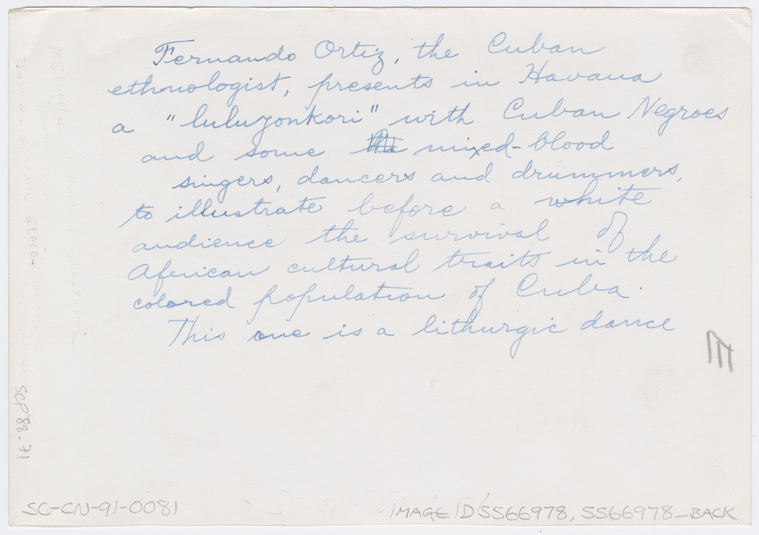 Fernando Ortiz, the Cuban
ethnologist, presents in Havana
a "luluyonkori" with Cuban Negroes
and some mixed-blood
singers, dancers and drummers,
to illustrate before a white
audience the survival of
African cultural traits in the
colored population of Cuba.
This one is a lithurgic dance
SCP 88.71
SC-CN-91-0081
IMAGE ID 5566978, 5566978-BACK